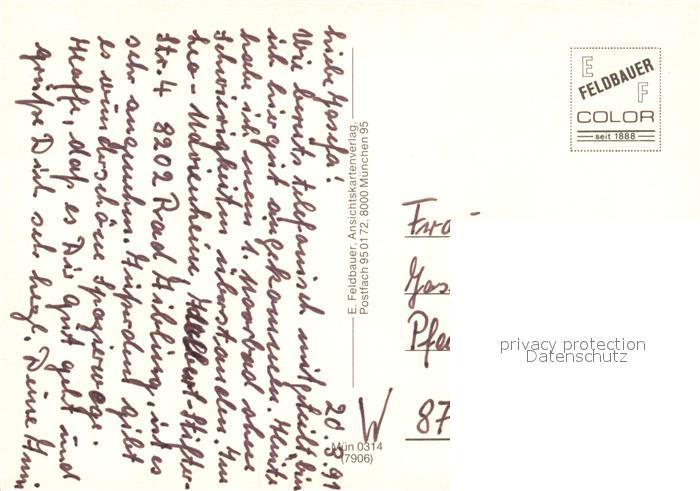 20.8.91
Liebe Josefa!
Wie bereits telefonisch mitgeteilt bin
ich hier gut angekommen. Heute
habe ich mein 1. Moorbad ohne
Schwierigkeiten überstanden. Im
Theo-Mörenheim, Adalbert-Stifter-
Str. 4 8202 Bad Aibling, ist es
sehr angenehm. Hierorts gibt
es wunderschöne Spazierwege.
Hoffe, daß es Dir gut geht und
grüße Dich sehr herzl. Deine
E. Feldbauer, Ansichtskartenverlag,
Postfach 95 01 72, 8000 München 95
Mün 0314
(7906)
E FELDBAUER F
COLOR
seit 1888
W
Frau
Jos
Pfe
87
privacy protection
Datenschutz